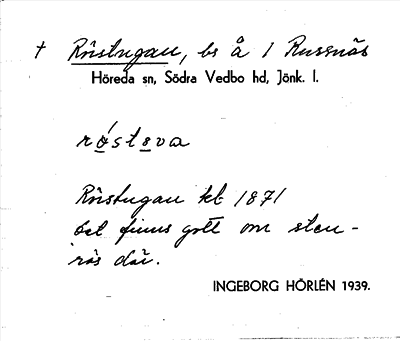 † Röstugan, bs å 1 Russnäs
Höreda sn, Södra Vedbo hd, Jönk. l.
røstəva
Röstugan kt 1871
det finns gott om sten-
rös där.
INGEBORG HÖRLÉN 1939.